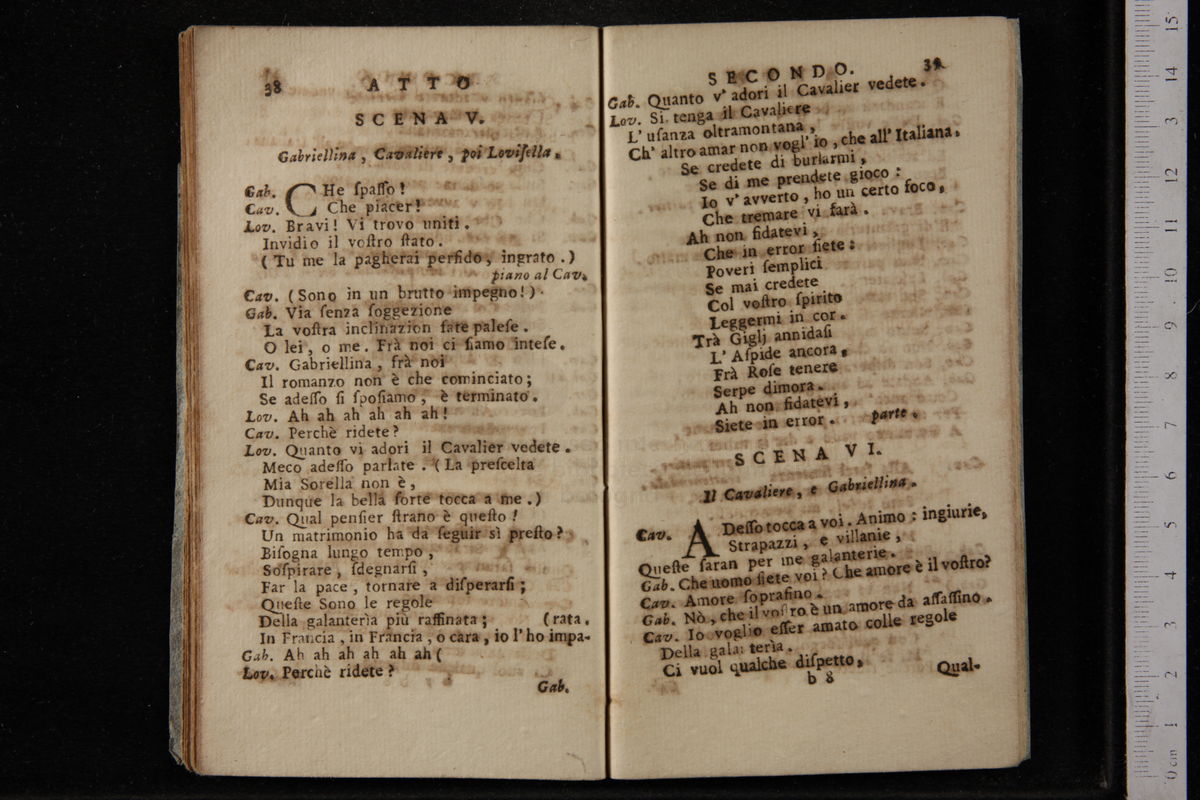 38 ATTO
SCENA V.
Gabriellina, Cavaliere, poi Loviſella.
Gab. CHe ſpaſſo!
Cav. Che piacer!
Lov. Bravi! Vi trovo uniti.
Invidio il voſtro ſtato.
(Tu me la pagherai perfido, ingrato.)
piano al Cav.
Cav. (Sono in un brutto impegno!)
Gab. Via ſenza ſoggezione
La voſtra inclinazion fate paleſe.
O lei, o me. Frà noi ci ſiamo inteſe.
Cav. Gabriellina, frà noi
Il romanzo non è che cominciato;
Se adeſſo ſi ſpoſiamo, è terminato.
Lov. Ah ah ah ah ah ah!
Cav. Perchè ridete?
Lov. Quanto vi adori il Cavalier vedete.
Meco adeſſo parlate. (La preſcelta
Mia Sorella non è,
Dunque la bella ſorte tocca a me.)
Cav. Qual penſier ſtrano è queſto!
Un matrimonio ha da ſeguir sì preſto?
Biſogna lungo tempo,
Soſpirare, ſdegnarſi,
Far la pace, tornare a diſperarſi;
Queſte Sono le regole
Della galanterìa più raffinata; (rata.
In Francia, in Francia, o cara, io l' ho impa-
Gab. Ah ah ah ah ah ah (
Lov. Perchè ridete?
Gab.
SECONDO. 39
Gab. Quanto v' adori il Cavalier vedete.
Lov. Si tenga il Cavaliere
L' uſanza oltramontana,
Ch' altro amar non vogl' io, che all' Italiana.
Se credete di burlarmi,
Se di me prendete gioco:
Io v' avverto, ho un certo foco,
Che tremare vi farà.
Ah non fidatevi,
Che in error ſiete:
Poveri ſemplici
Se mai credete
Col voſtro ſpirito
Leggermi in cor.
Trà Giglj annidaſi
L' Aſpide ancora,
Frà Roſe tenere
Serpe dimora.
Ah non fidatevi,
Siete in error. parte.
SCENA VI.
Il Cavaliere, e Gabriellina.
Cav. ADeſſo tocca a voi. Animo: ingiurie,
Strapazzi, e villanie,
Queſte ſaran per me galanterie.
Gab. Che uomo ſiete voi? Che amore è il voſtro?
Cav. Amore ſoprafino.
Gab. Nò, che il voſtro è un amore da aſſaſſino.
Cav. Io voglio eſſer amato colle regole
Della galanterìa.
Ci vuol qualche diſpetto,
b 8 Qual-